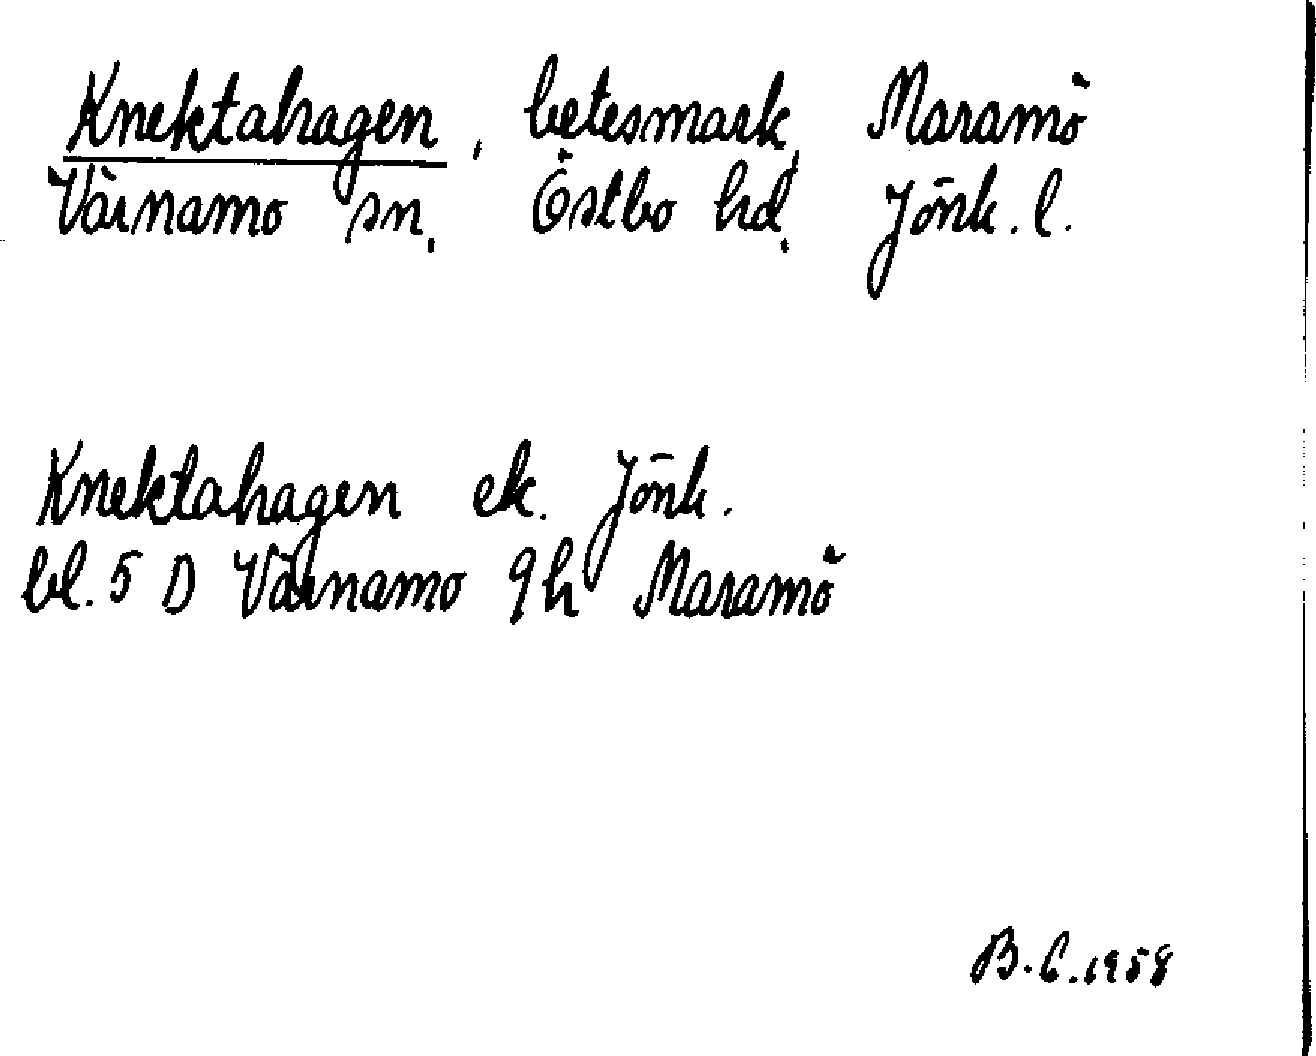 Knektahagen, betesmark, Maramö
Värnamo sn, Östbo hd, Jönk. l.
Knektahagen ek. Jönk.
bl. 5 D Värnamo 9h Maramö
B.C. 1958